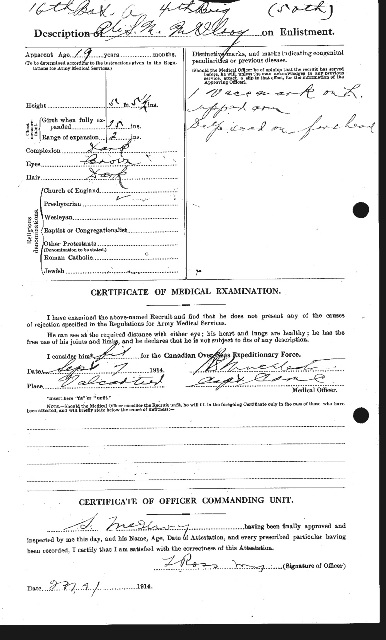 16th Bat. 4th Brig (50th)
Description of M. McElroy on Enlistment.
Apparent Age 19 years months.
(To be determined according to the instructions given in the Regulations for Army Medical Services.)
Distinctive marks, and marks indicating congenital peculiarities or previous disease.
(Should the Medical Officer be of opinion that the recruit has served before, he will, unless the man acknowledges to any previous service, attach a slip to that effect, for the information of the Approving Officer).
Height 5 ft. ins.
Chest measurement
Girth when fully expanded 35 ins.
Range of expansion 2 ins.
Complexion Dark
Eyes Brown
Hair Dark
1 Vacc mark on R.
upper arm
on forehead
Religious denominations
Church of England
Presbyterian
Wesleyan
Baptist or Congregationalist
Other Protestants
(Denomination to be stated.)
Roman Catholic
Jewish
CERTIFICATE OF MEDICAL EXAMINATION.
I have examined the above-named Recruit and find that he does not present any of the causes of rejection specified in the Regulations for Army Medical Services.
He can see at the required distance with either eye; his heart and lungs are healthy; he has the free use of his joints and limbs, and he declares that he is not subject to fits of any description.
I consider him* fit for the Canadian Over-Seas Expeditionary Force.
Date Sept 7 1914.
Place Valcartier
Medical Officer.
*Insert here "fit" or "unfit."
NOTE.—Should the Medical Officer consider the Recruit unfit, he will fill in the foregoing Certificate only in the case of those who have been attested, and will briefly state below the cause of unfitness:—
CERTIFICATE OF OFFICER COMMANDING UNIT.
S. McElroy having been finally approved and
inspected by me this day, and his Name, Age, Date of Attestation, and every prescribed particular having
been recorded, I certify that I am satisfied with the correctness of this Attestation.
Ross (Signature of Officer)
Date 1914.